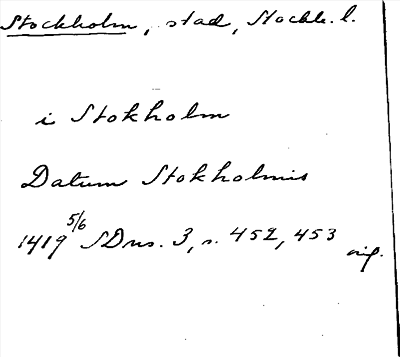 Stockholm, stad, Stockh. l.
i Stokholm
Datum Stokholmis
1419 5/6 SDns. 3, s. 452, 453